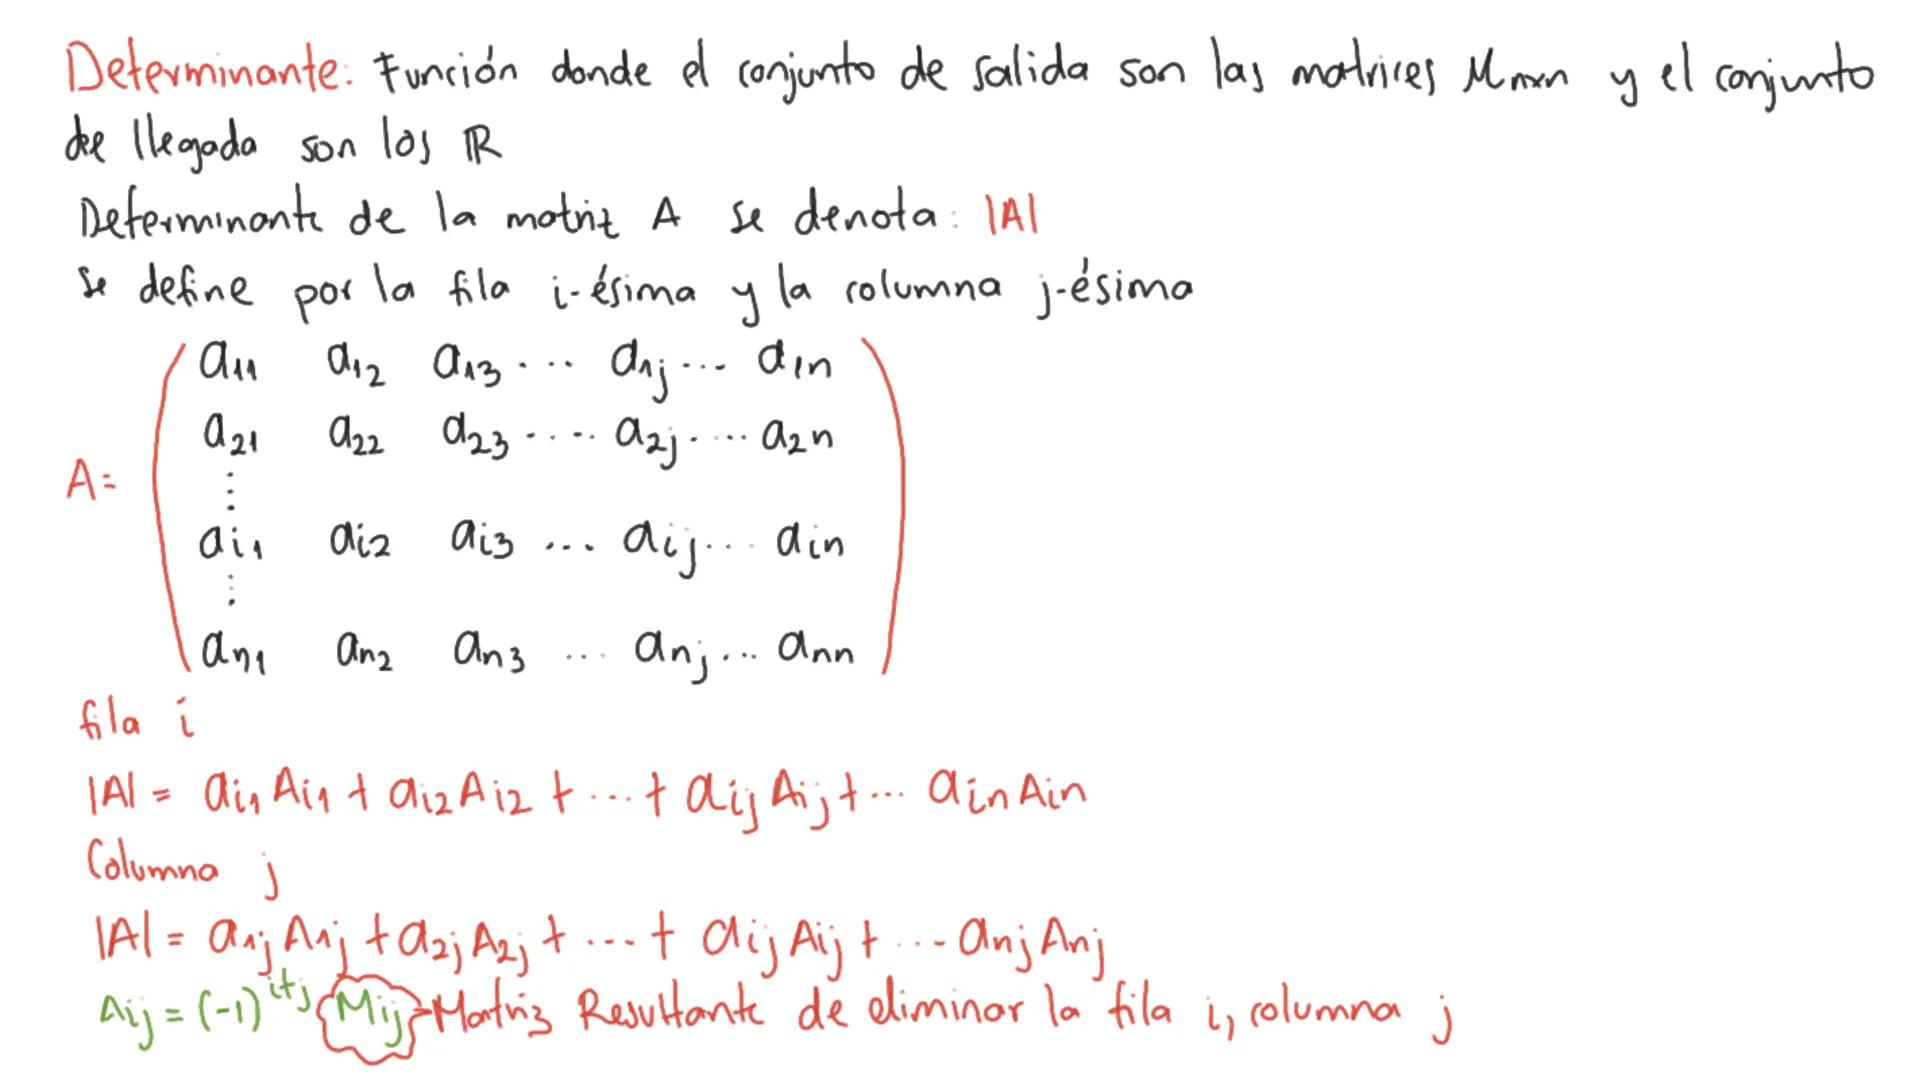 Determinante: Función donde el conjunto de salida son las matrices Mnxn y el conjunto
de llegada son los ℝ
Determinante de la matriz A se denota: |A|
Se define por la fila i-ésima y la columna j-ésima
a11 a12 a13 ... a1j ... a1n
a21 a22 a23 ... a2j ... a2n
A=
⋮
ai1 ai2 ai3 ... aij ... ain
⋮
an1 an2 an3 ... anj ... ann
fila i
|A| = ai1 Ai1 + ai2 Ai2 + ... + aij Aij + ... ain Ain
Columna j
|A| = a1j A1j + a2j A2j + ... + aij Aij + ... anj Anj
Aij = (-1)^i+j Mij Matriz Resultante de eliminar la fila i, columna j